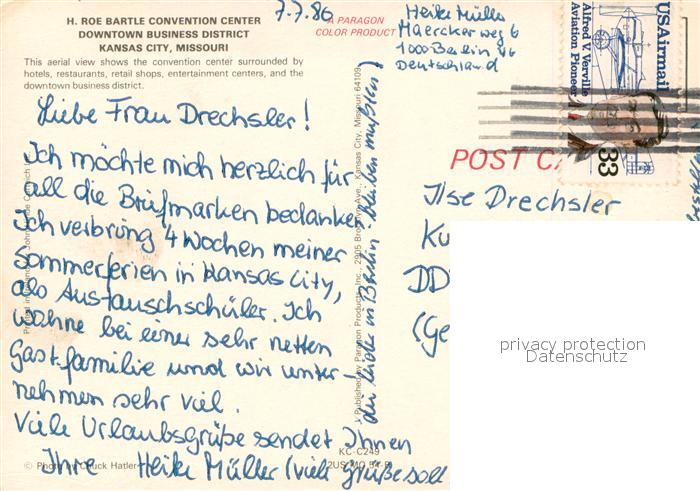 H. ROE BARTLE CONVENTION CENTER
DOWNTOWN BUSINESS DISTRICT
KANSAS CITY, MISSOURI
This aerial view shows the convention center surrounded by
hotels, restaurants, retail shops, entertainment centers, and the
downtown business district.
7.7.86
A PARAGON
COLOR PRODUCT
Heike Müller
Maercker weg 6
1000 Berlin 46
Deutschland
Liebe Frau Drechsler!
Ich möchte mich herzlich für
all die Briefmarken bedanken
Ich verbring 4 Wochen meiner
Sommerferien in Kansas City,
als Austauschschüler. Ich
wohne bei einer sehr netten
Gastfamilie und wir unter-
nehmen sehr viel.
Viele Urlaubsgrüße sendet Ihnen
Ihre Heike Müller (viele Grüße soll
die leider in Berlin bleiben mußten)
Published by Paragon Products, Inc., 2905 Brooklyn Ave., Kansas City, Missouri 64109
KC-C249
© Photo by Chuck Hatler
POST CA
USAirmail
Alfred V. Verville
Aviation Pioneer
33
Ilse Drechsler
Ku
DD
(Ge
privacy protection
Datenschutz